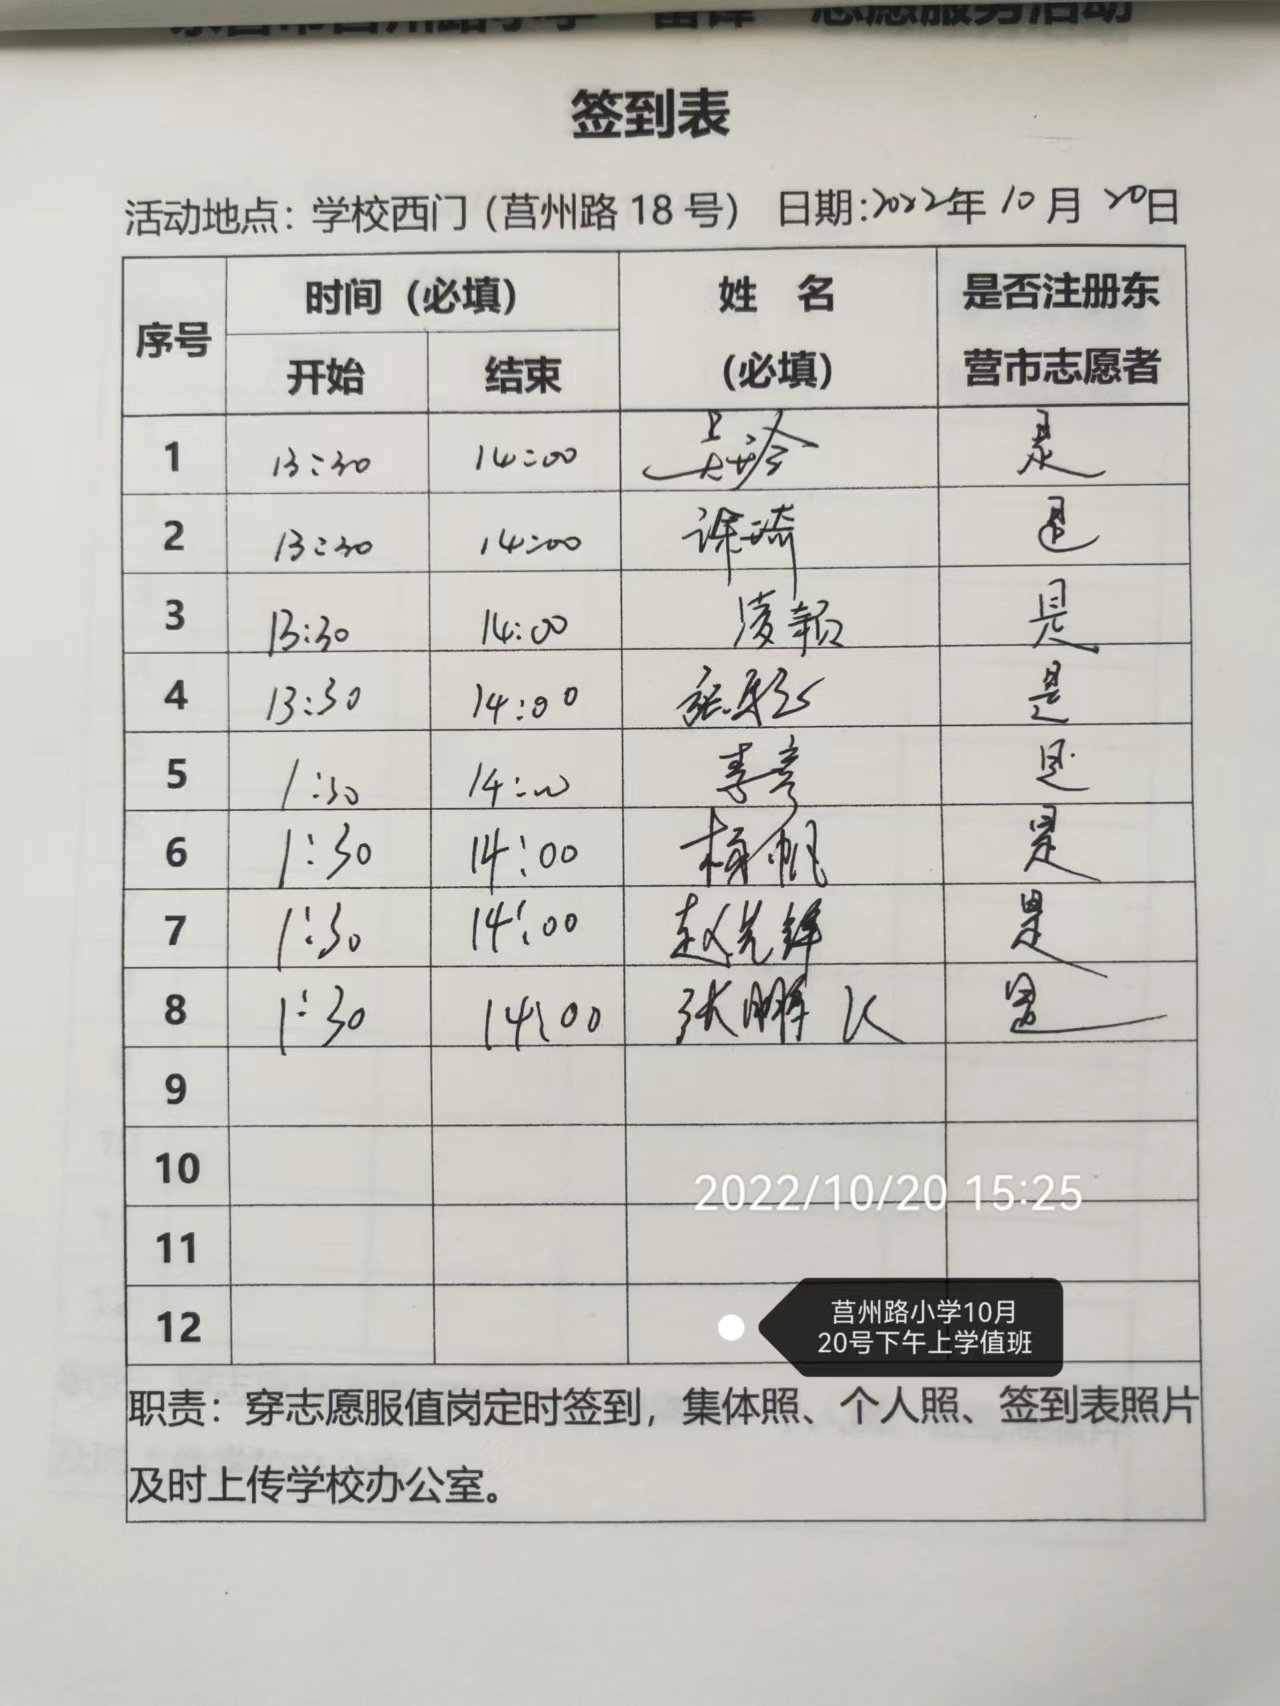 签到表
活动地点：学校西门（莒州路 18 号） 日期:2022年 10 月 20日
序号 时间（必填） 姓 名 （必填） 是否注册东营市志愿者
开始 结束
1 13:30 14:00 是
2 13:30 14:00 徐琦 是
3 13:30 14:00 凌颖 是
4 13:30 14:00 是
5 1:30 14:00 李彦 是
6 1:30 14:00 杨帆 是
7 1:30 14:00 赵先锋 是
8 1:30 14:00 张鹏 是
9
10
11
12
2022/10/20 15:25
莒州路小学10月
20号下午上学值班
职责：穿志愿服值岗定时签到，集体照、个人照、签到表照片
及时上传学校办公室。